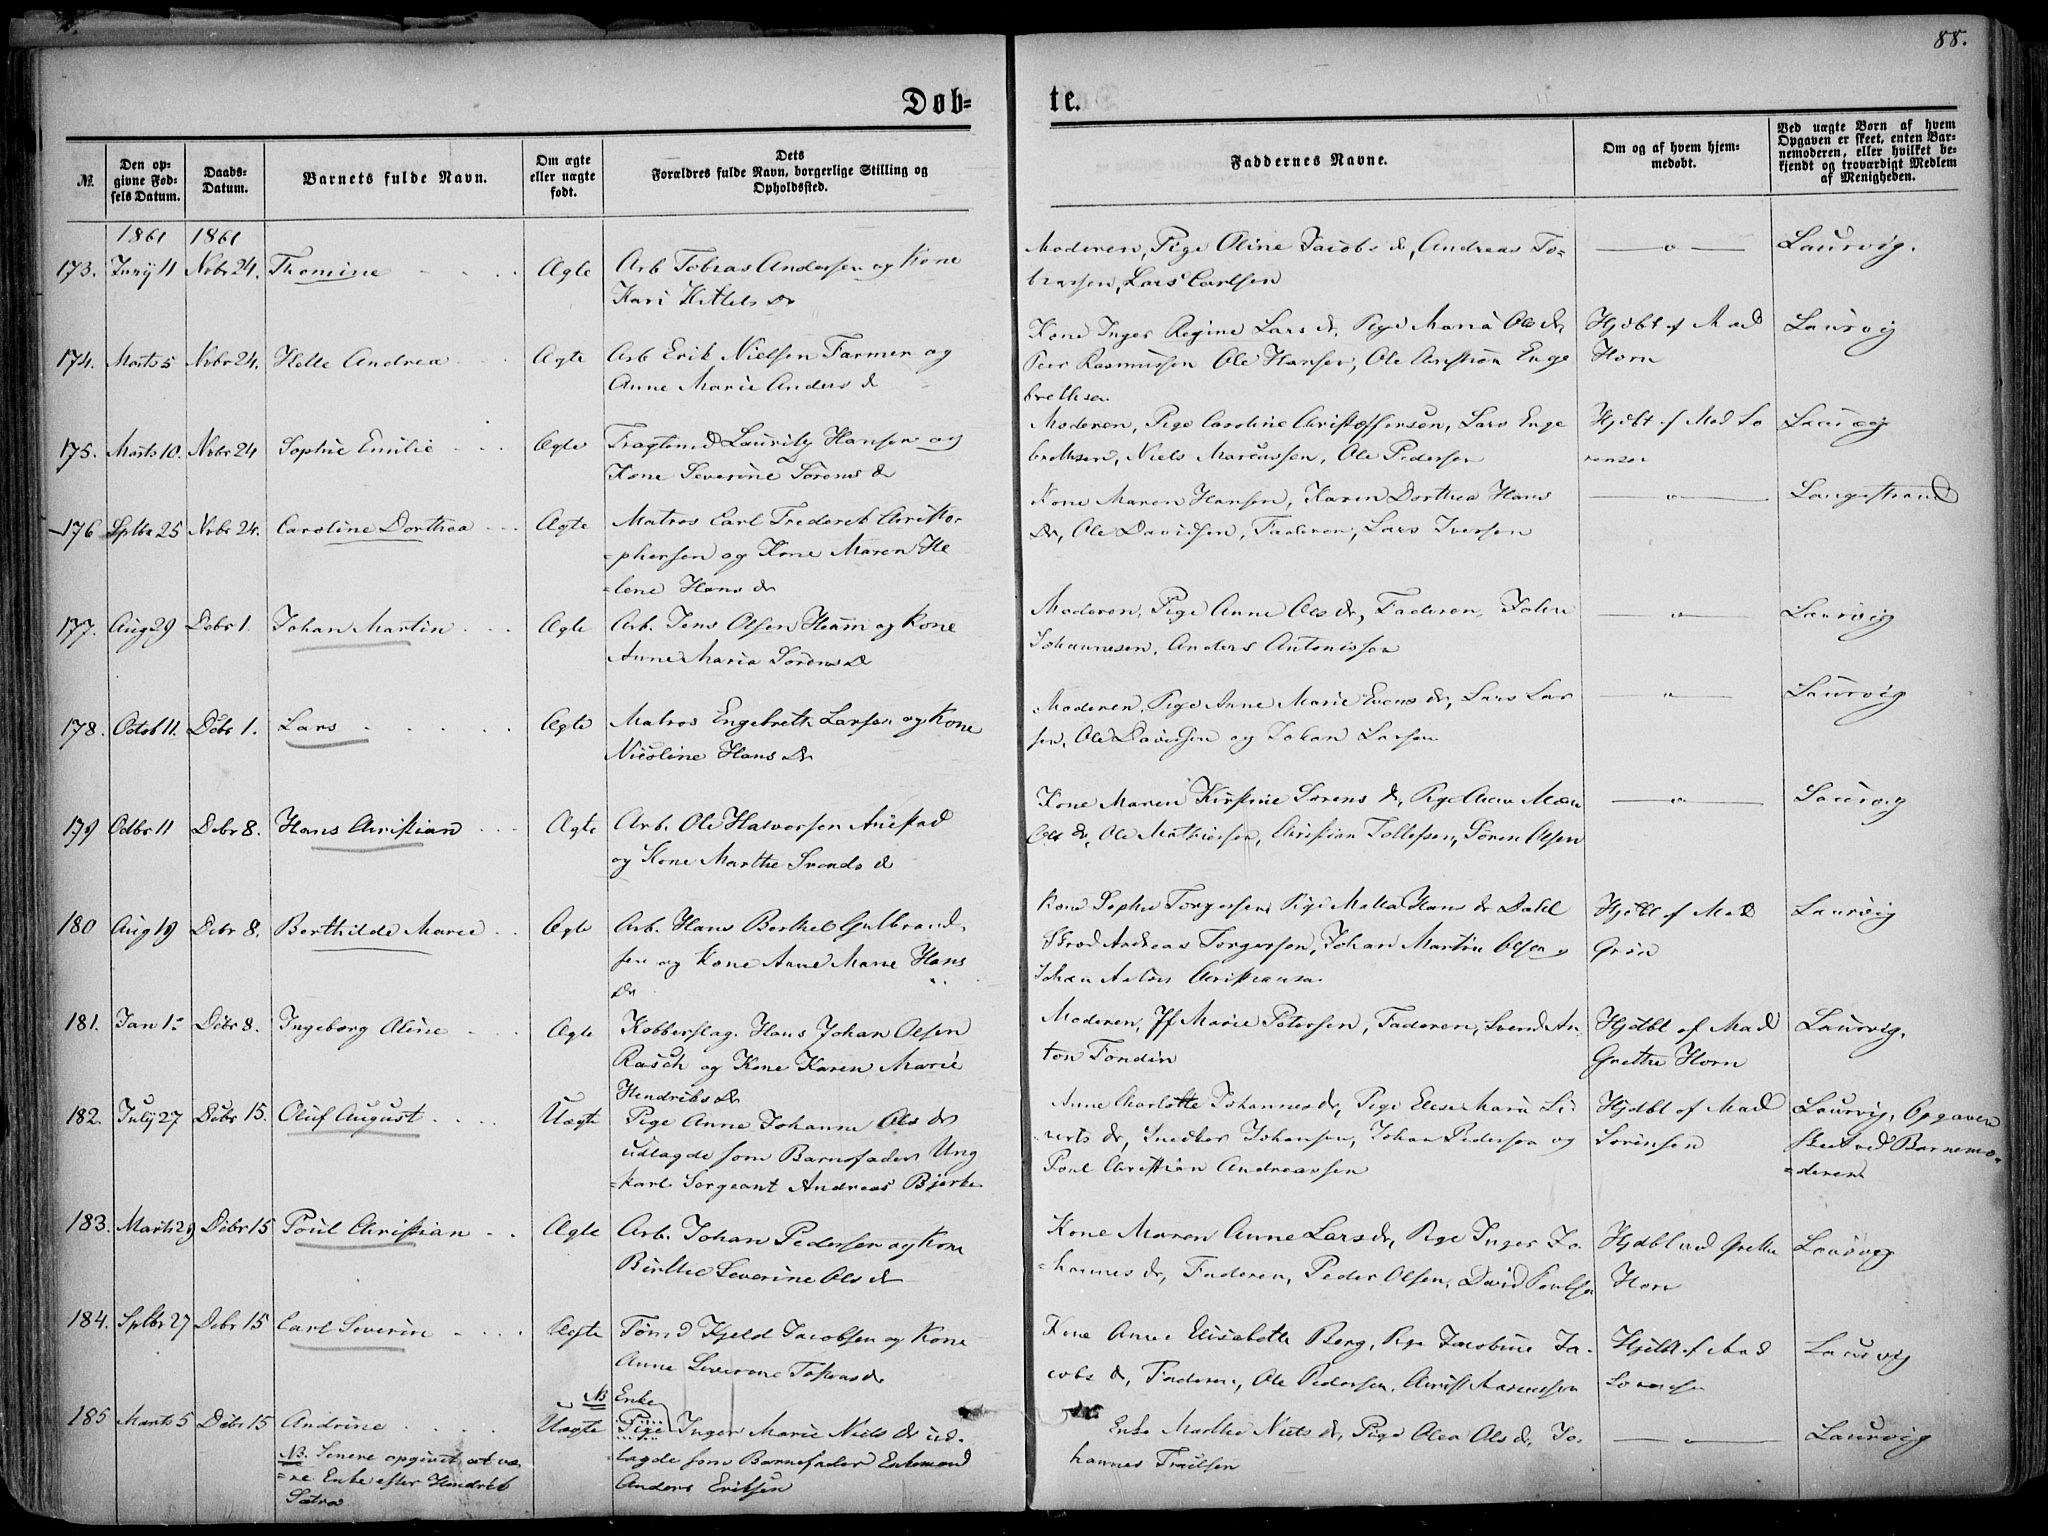 88.
Døb=
te.
№.
Den op-
givne Fød-
sels Datum.
Daabs-
Datum.
Barnets fulde Navn.
Om ægte
eller uægte
født.
Dets
Forældres fulde Navn, borgerlige Stilling og
Opholdssted.
Faddernes Navne.
Om og af hvem hjem-
medøbt.
Ved uægte Børn af hvem
Opgaven er skeet, enten Bar-
nemoderen, eller hvilket be-
kjendt og troværdigt Medlem
af Menigheden.
1861 1861
173. Juny 11 Nvbr 24. Thomine Ægte Arb Tobias Andersen og Kone
Kari Kittels Dr
Moderen, Pige Oline Jacobs dr, Andreas To-
biassen, Lars Carlsen
— " — Laurvig.
174. Marts 5 Nvbr 24. Helle Andrea Ægte Arb Erik Nielsen Farmen og
Anne Marie Anders dr
Kone Inger Regine Lars dr, Pige Maria Ols dr
Peer Rasmussen Ole Hansen, Ole Christian Enge
brethsen
Hjdbt af Mad
Horn
Laurvig
175. Marts 10. Nvbr 24 Sophie Emilie Ægte Fragtmd Lauritz Hansen og
Kone Severine Sørens dr
Moderen, Pige Caroline Christoffersen, Lars Enge
brethsen, Niels Marcussen, Ole Pedersen
Hjdbt af Mad So
rensen
Laurvig
176 Sptbr 25 Nvbr 24. Caroline Dorthea Ægte Matros Carl Frederik Christo-
=phersen og Kone Maren He
=lene Hans dr
Kone Maren Hansen, Karen Dorthea Hans
Dr, Ole Davidsen, Faderen, Lars Iversen
— " — Langestrand
177. Aug 29 Debr 1. Johan Martin Ægte Arb. Jens Olsen Hamm og Kone
Anne Maria Sørens Dr
Moderen, Pige Anne Ols dr, Faderen, John
Johannesen, Anders Antonissen
— " — Laurvig
178. Octob 11. Debr 1. Lars Ægte Matros Engebreth Larsen og Kone
Nicoline Hans Dr
Moderen, Pige Anne Marie Evens dr, Lars Lar
sen, Ole Davidsen og Johan Larsen
— " — Laurvig
179 Octbr 11 Debr 8. Hans Christian Ægte Arb. Ole Halvorsen Auestad
og Kone Marthe Svends dr
Kone Maren Kirstine Sørens dr, Pige Maren
Ols dr, Ole Mathiesen, Christian Tollefsen, Søren Olsen
— " — Laurvig
180 Aug 19 Debr 8. Berthilde Marie Ægte Arb. Hans Berthel Gulbrand
sen og Kone Anne Marie Hans
Dr
Kone Sophie Torgersen, Pige Malla Hans dr Dahl
Skrød Andreas Torgersen, Johan Martin Olsen,
Johan Anton Christiansen
Hjdbt af Mad
Grøn
Laurvig
181. Jan 1 Debr 8. Ingeborg Oline Ægte Kobberslag. Hans Johan Olsen
Rasch og Kone Karen Marie
Hendriks Dr
Moderen, Jf Marie Petersen, Faderen, Svend An-
ton Fonden
Hjdbt af Mad
Grethe Horn
Laurvig.
182. July 27 Debr 15. Oluf August Uægte Pige Anne Johanne Ols dr
udlagde som Barnefader Ung
=karl Sergeant Andreas Bjerke
Anne Charlotte Johannesdr, Pige Elise Maria Si-
verts dr, Snedker Johansen, Johan Pedersen og
Poul Christian Andreassen
Hjdbt af Mad
Sørensen
Laurvig, Opgaven
skeet ved Barnemo-
=deren
183. Marts 29 Debr 15 Poul Christian Ægte Arb. Johan Pedersen og Kone
Birthe Severine Ols dr
Kone Maren Anne Larsdr, Pige Inger Jo-
=hannes dr, Faderen, Peder Olsen, David Poulsen
Hjdbt ved Grethe
Horn
Laurvig
184. Sptbr 27 Debr 15 Carl Severin Ægte Tømmd Kjeld Jacobsen og Kone
Anne Severine Tobiasdr
Kone Anne Elisabeth Berg, Pige Jacobine Ja-
cobs dr, Faderen, Ole Pedersen, Christ Marcussen
Hjdbt af Mad
Sorensen
Laurvig
185 Marts 5 Debr 15 Andrine
NB. Senere opgivet at væ-
=re Enke efter Hendrik
Sætra
NB
Uægte
Enke
Pige Inger Marie Niels dr ud-
=lagde som Barnefader Enkemand
Anders Eriksen
Enke Marthe Niels dr, Pige Olea Ols dr, Jo-
hannes Truelsen
— " — Laurvig